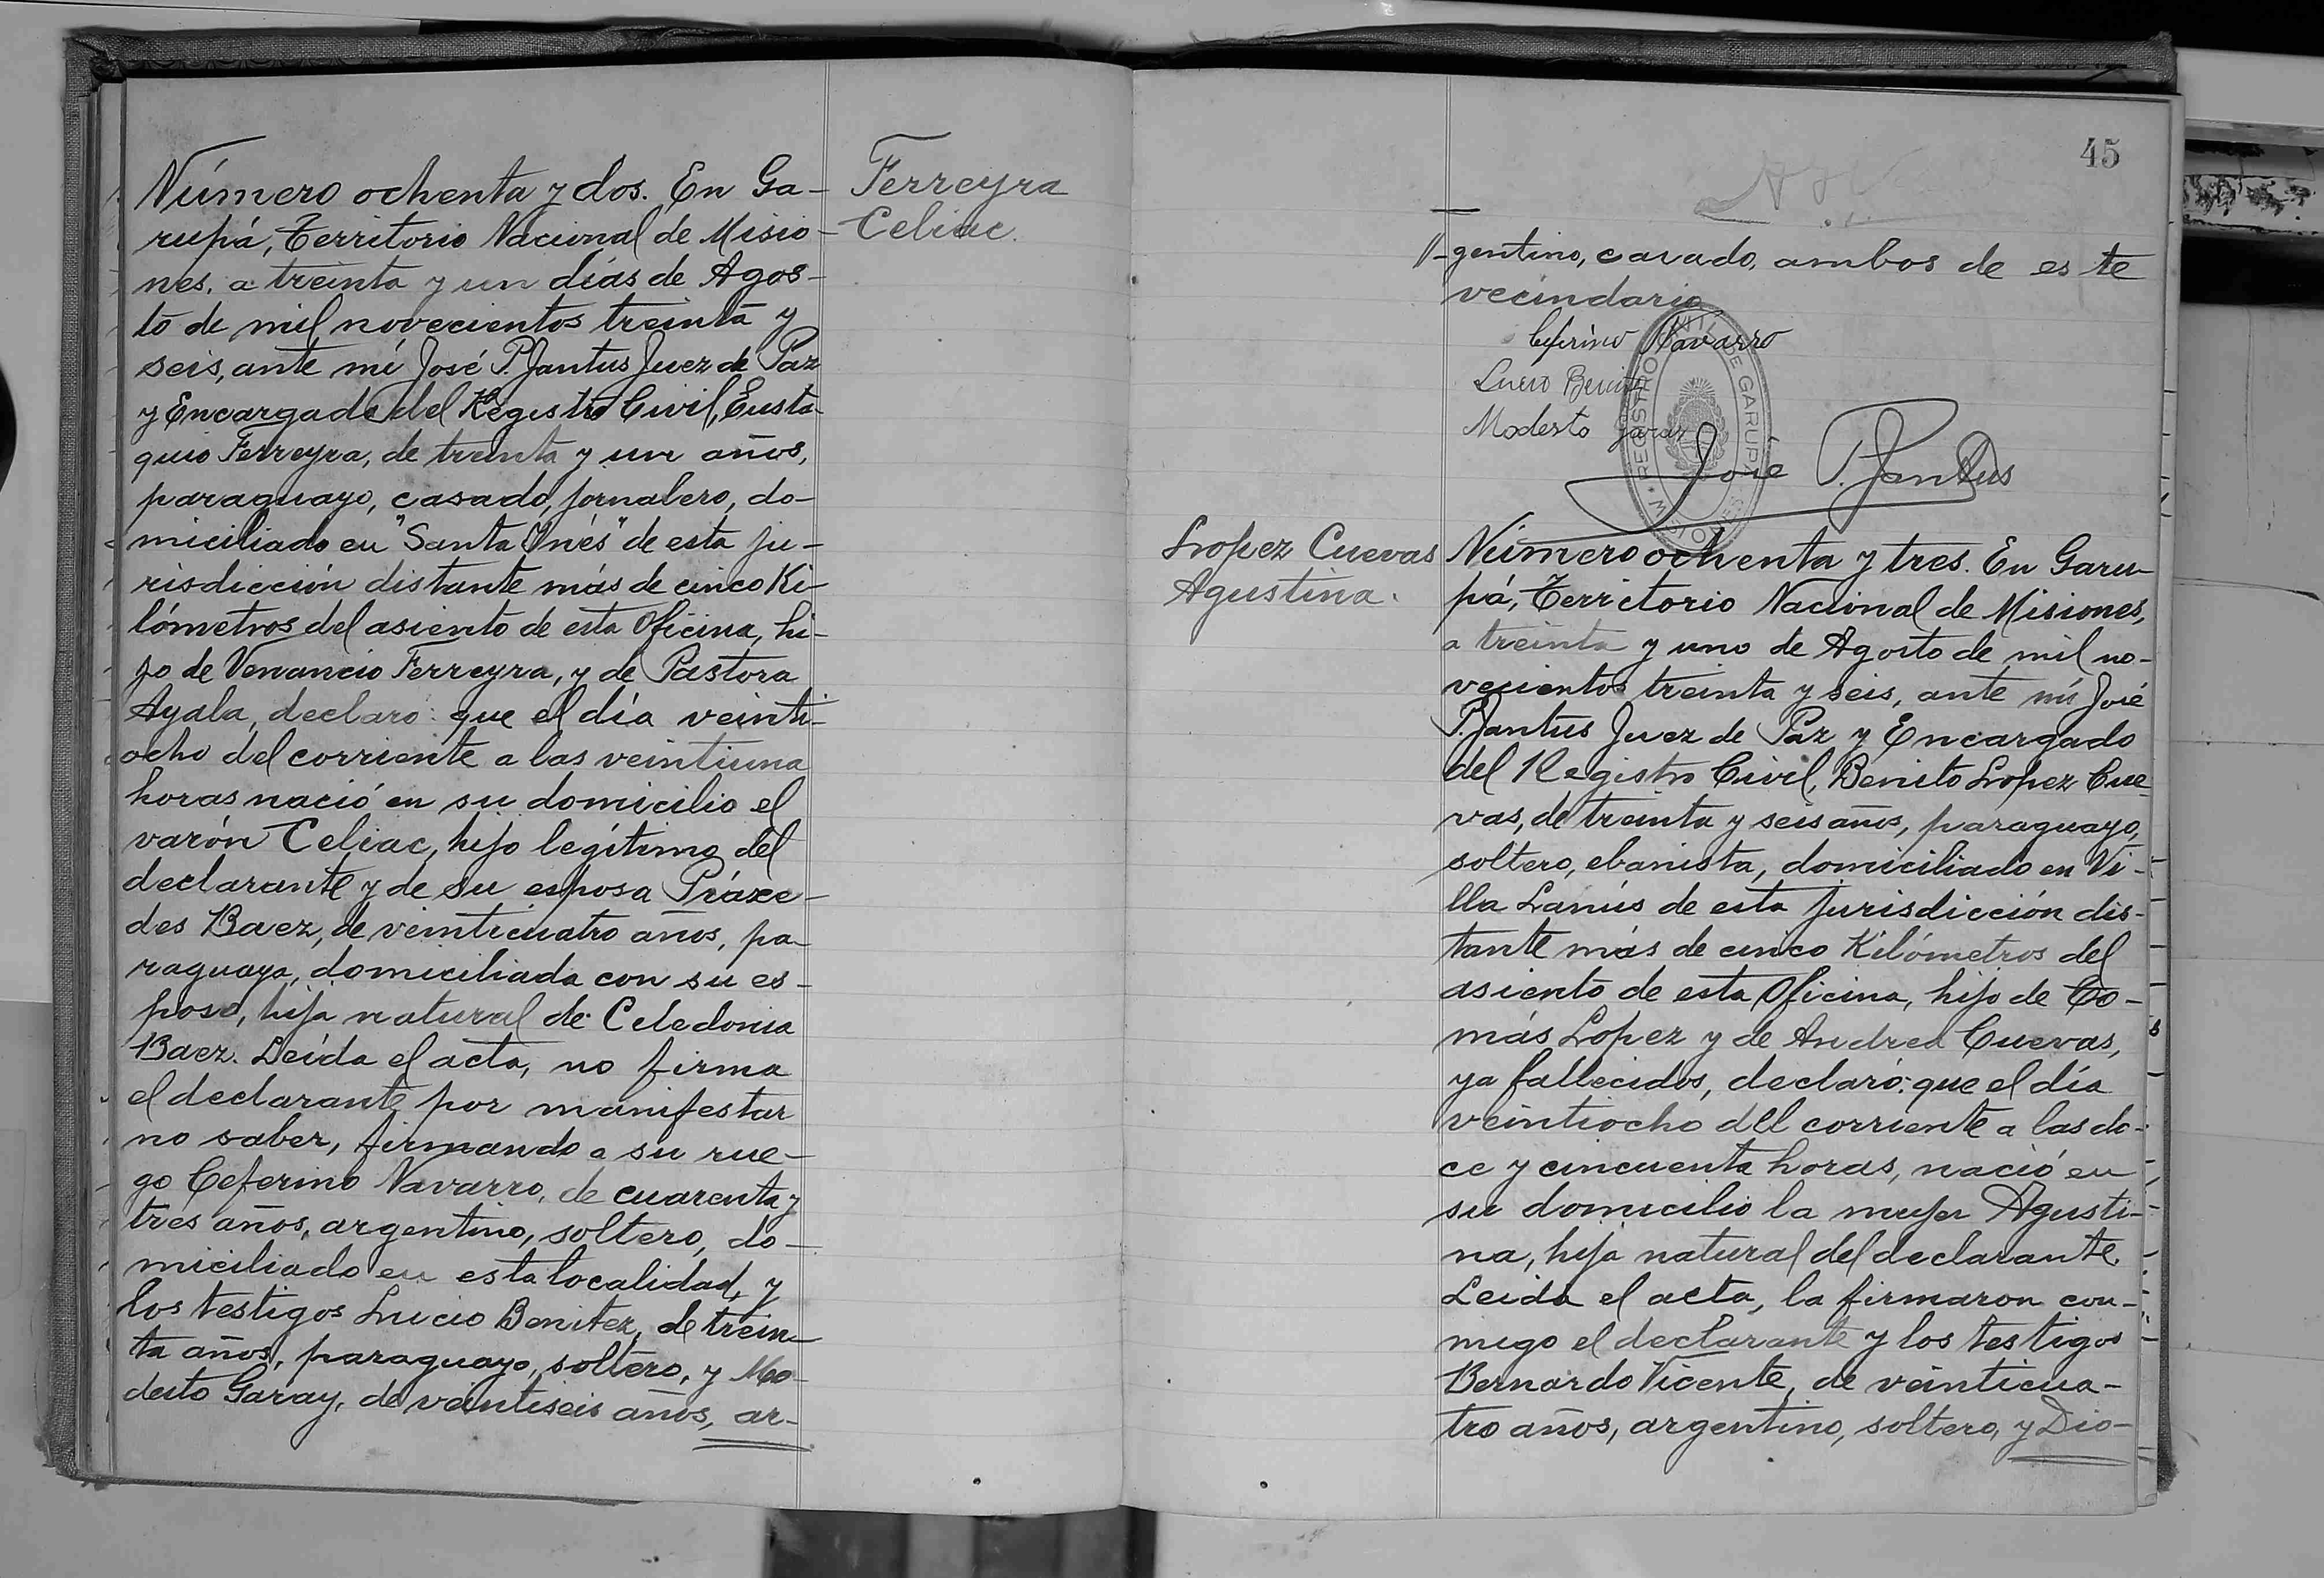 Número ochenta y dos. En Ga-
rupá, Territorio Nacional de Misio-
nes, a treinta y un días de Agos-
to de mil novecientos treinta y
seis, ante mí José P. Jantus Juez de Paz
y Encargado del Registro Civil, Eusta-
quio Ferreyra, de treinta y un años,
paraguayo, casado, jornalero, do-
miciliado en "Santa Ynés" de esta ju-
risdicción distante más de cinco Ki-
lómetros del asiento de esta Oficina, hi-
jo de Venancio Ferreyra, y de Pastora
Ayala, declaro: que el día veinti-
ocho del corriente a las veintiuna
horas nació en su domicilio el
varón Celiac, hijo legítimo del
declarante y de su esposa Práxe-
des Baez, de veinticuatro años, pa-
raguaya, domiciliada con su es-
poso, hija natural de Celedonia
Baez. Leída el acta, no firma
el declarante por manifestar
no saber, firmando a su rue-
go Ceferino Navarro, de cuarenta y
tres años, argentino, soltero, do-
miciliado en esta localidad, y
los testigos Lucio Benitez, de trein-
ta años, paraguayo, soltero, y Mo-
desto Garay, de veintiseis años, ar-
Ferreyra
Celiac.
45
gentino, casado, ambos de este
vecindario
Ceferino Navarro
Lucio Benitez
Modesto Garay
REGISTRO CIVIL DE GARUPA
MISIONES
José P. Jantus
Lopez Cuevas
Agustina.
Número ochenta y tres. En Garu-
pá, Territorio Nacional de Misiones,
a treinta y uno de Agosto de mil no-
vecientos treinta y seis, ante mí José
P. Jantus Juez de Paz y Encargado
del Registro Civil, Benito Lopez Cue-
vas, de treinta y seis años, paraguayo,
soltero, ebanista, domiciliado en Vi-
lla Lanús de esta jurisdicción dis-
tante más de cinco Kilómetros del
asiento de esta Oficina, hijo de To-
más Lopez y de Andrea Cuevas,
ya fallecidos, declaró: que el día
veintiocho del corriente a las do-
ce y cincuenta horas, nació en
su domicilio la mujer Agusti-
na, hija natural del declarante.
Leida el acta, la firmaron con-
migo el declarante y los testigos
Bernardo Vicente, de veinticua-
tro años, argentino, soltero, y Dio-